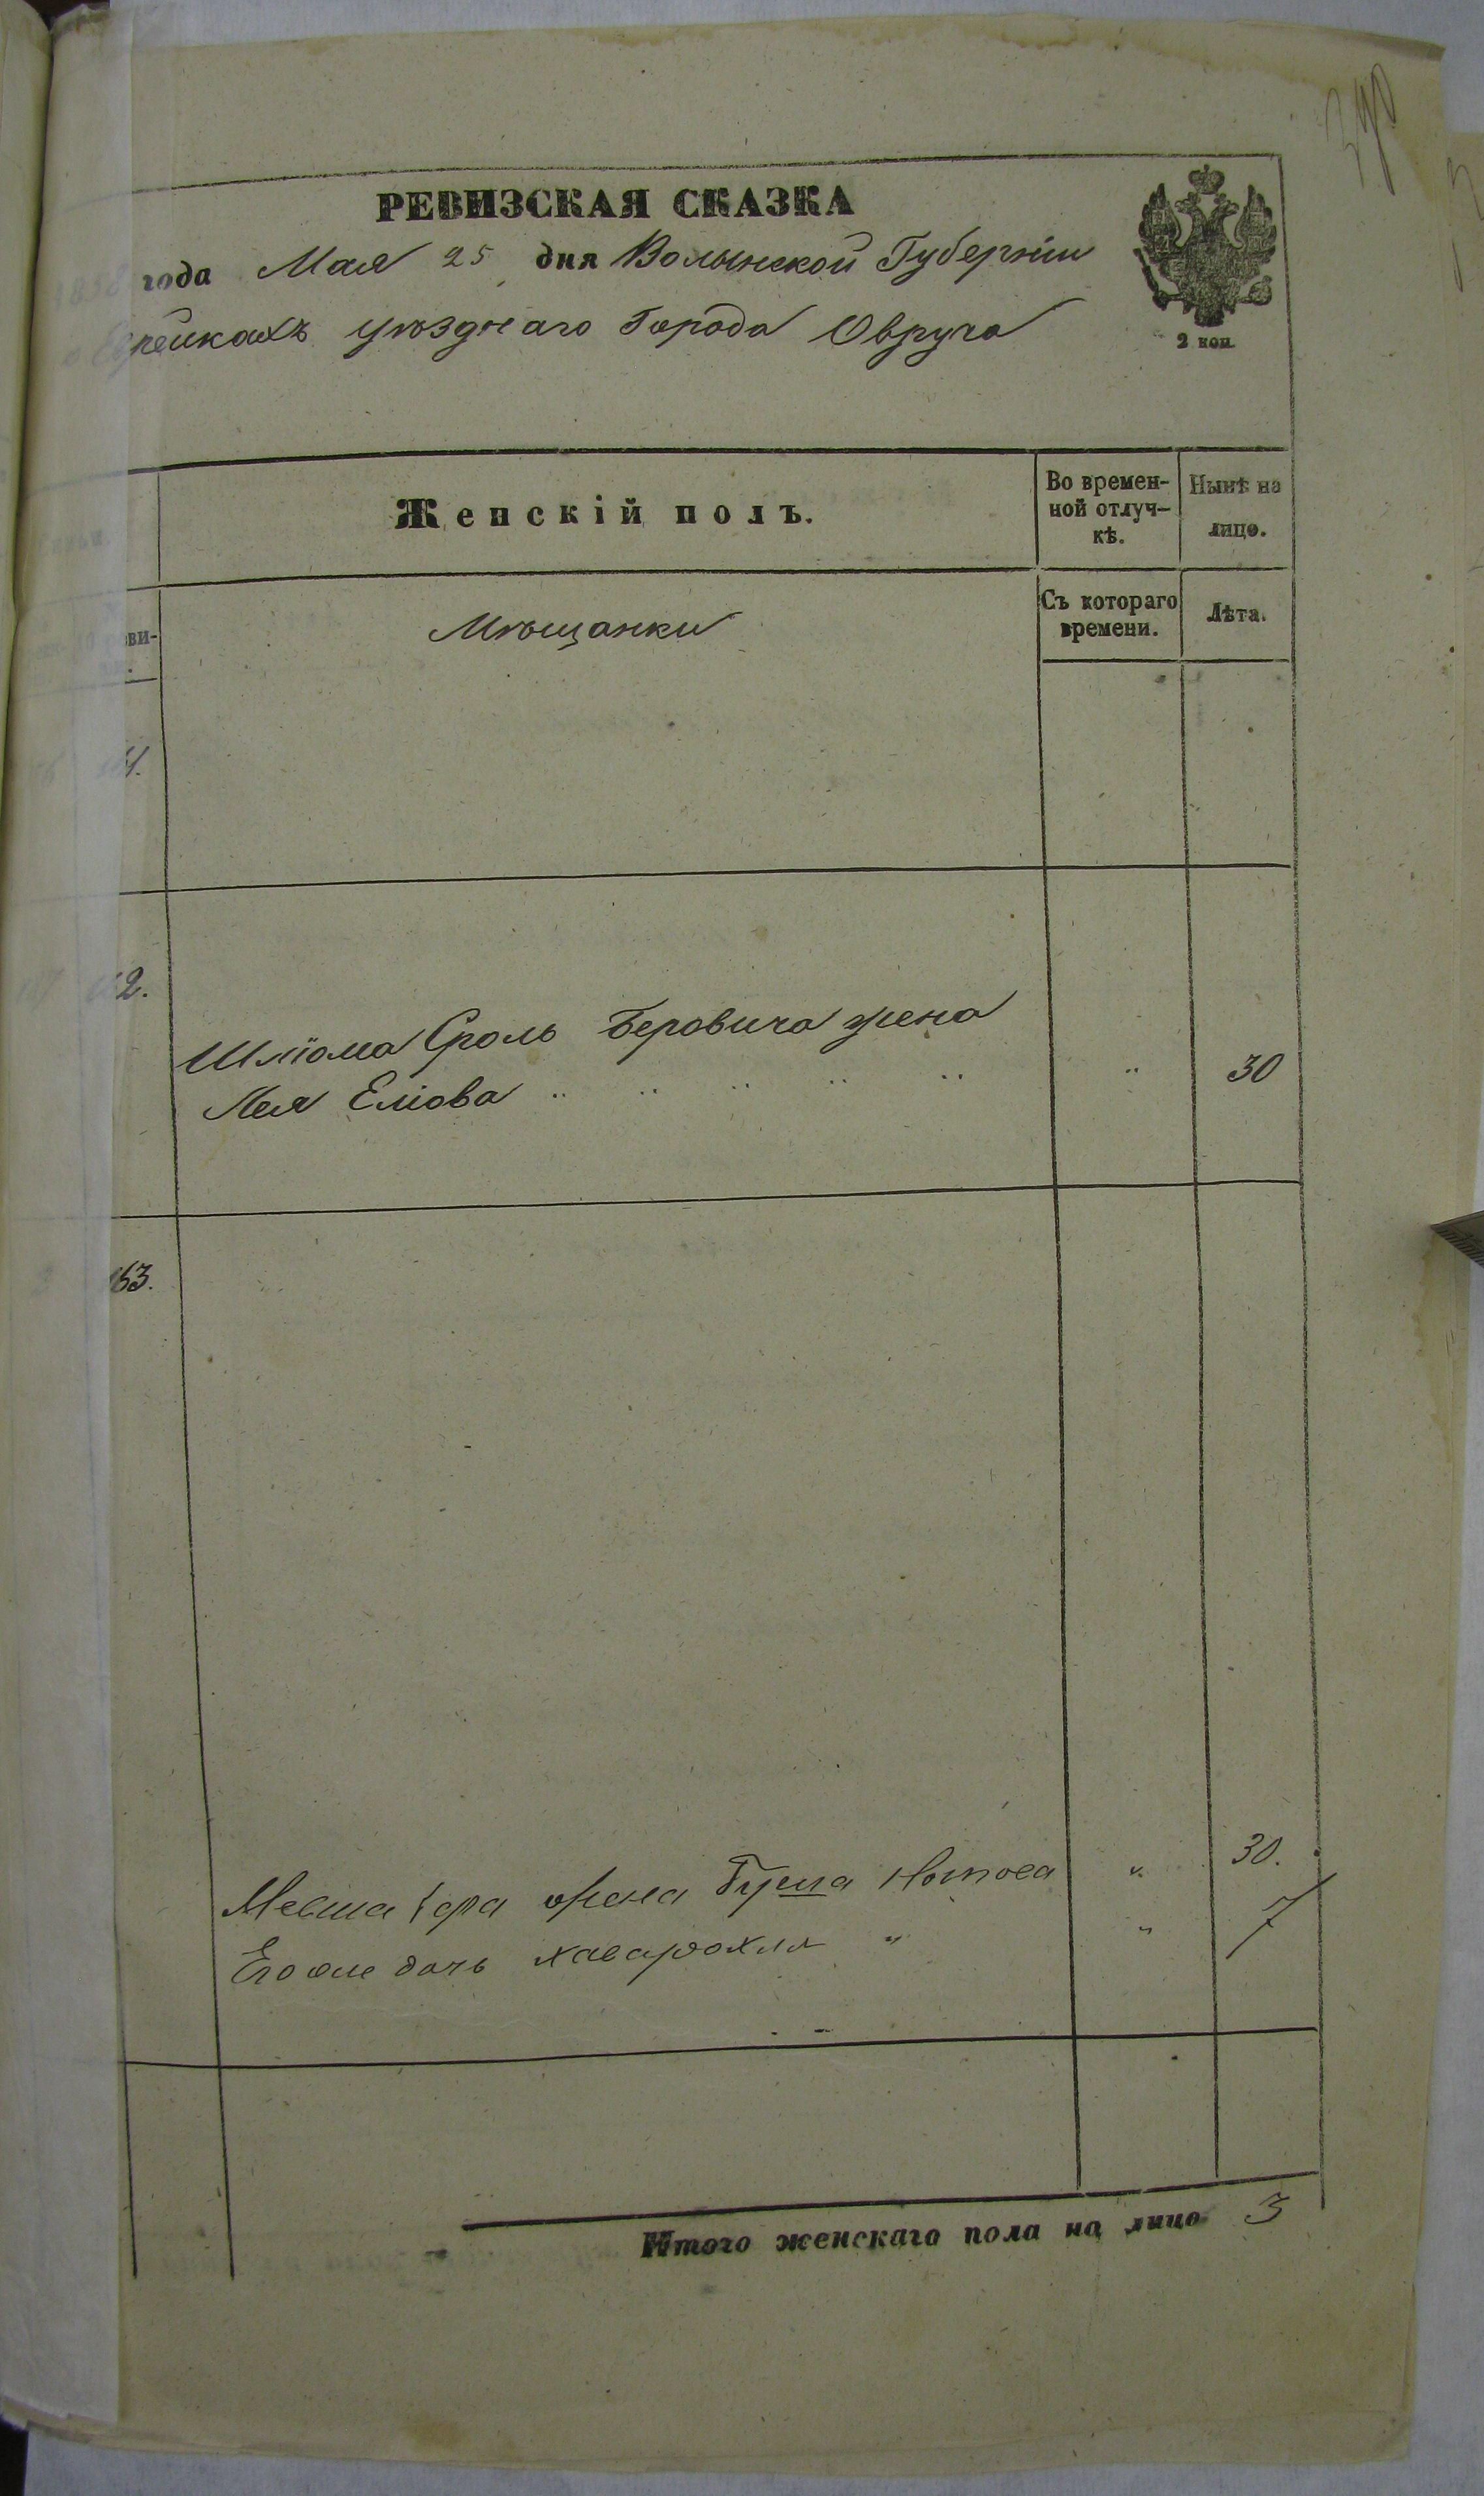 РЕВИЗСКАЯ СКАЗКА
1858 года Мая 25 дня Волынской Губерніи
о Еврейкахъ уѣзднаго Города Овруча
2 коп.
Женскій полъ.
Во времен-
ной отлуч-
кѣ.
Нынѣ на
лицо.
Съ котораго
времени.
Лѣта.
ви-
Мѣщанки
2.
Шліома Сроль Беровича жена
Лея Еліова " 30
163.
Мевша жена Нотова " 30.
Его же дочь Хаварохля " " 7
Итого женскаго пола на лицо 3